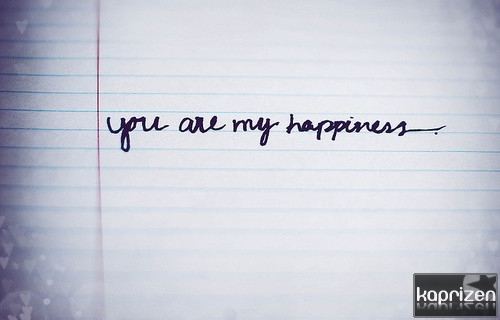 you are my happiness.
kaprizen